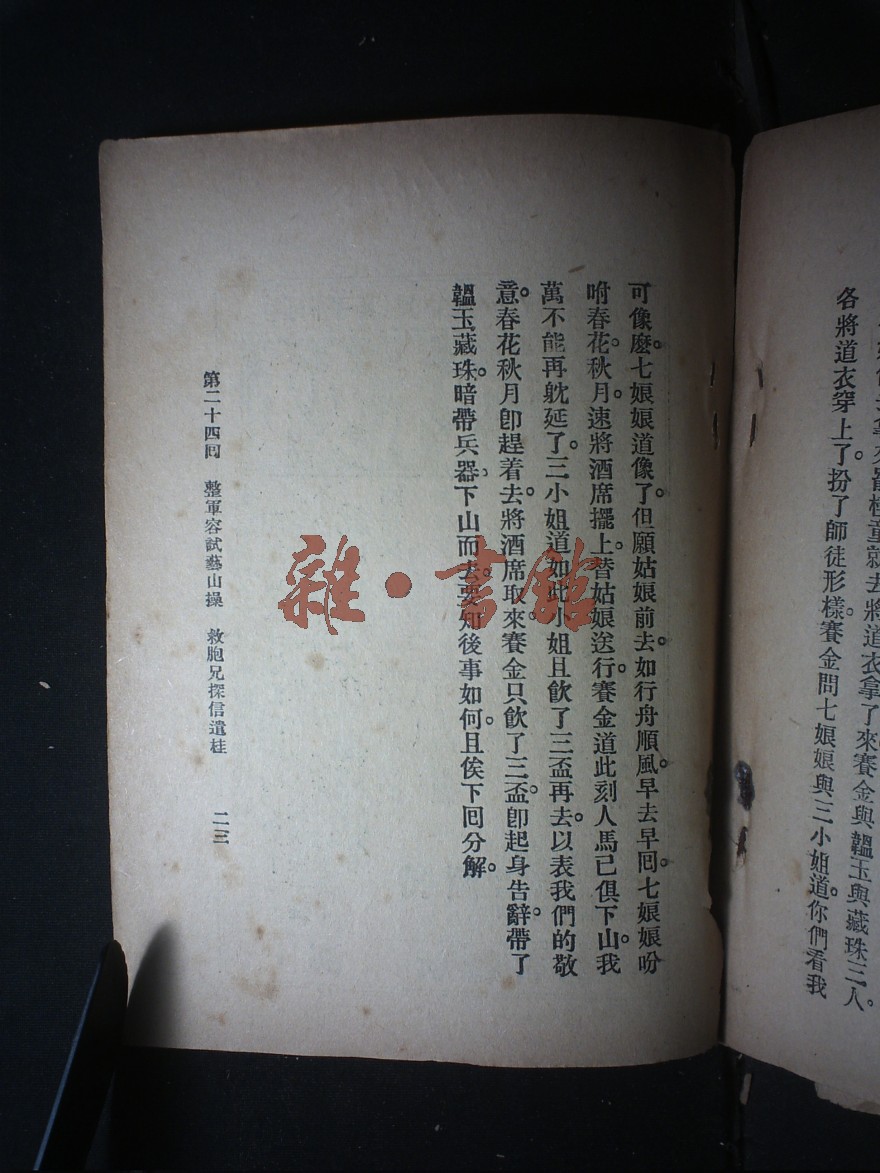 來賽金與韞玉與藏珠三人。
各將道衣穿上了。扮了師徒形樣。賽金問七娘娘與三小姐道。你們看我
可像麽。七娘娘道像了。但願姑娘前去。如行舟順風。早去早回。七娘娘吩
咐春花。秋月。速將酒席擺上。替姑娘送行。賽金道此刻人馬已俱下山。我
萬不能再躭延了。三小姐道如此小姐且飲了三盃再去。以表我們的敬
意。春花秋月卽趕着去。將酒席取來。賽金只飲了三盃。卽起身告辭。帶了
韞玉藏珠。暗帶兵器。下山而去。要知後事如何。且俟下回分解。
第二十四回 整軍容試藝山操 救胞兄探信遺桂 二三
雜·書館